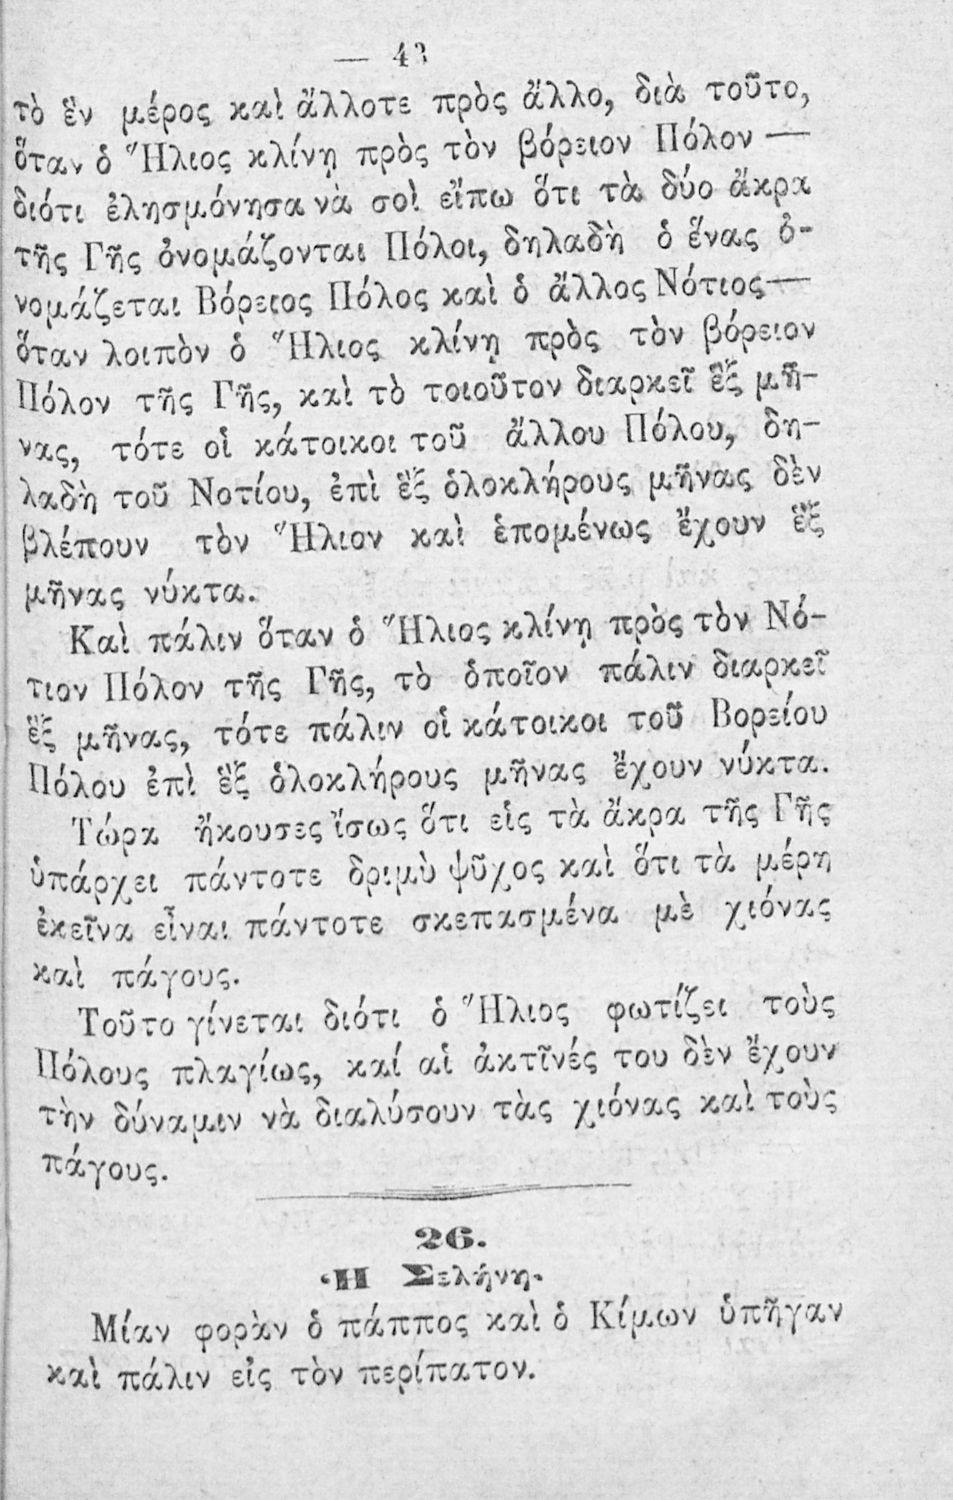 — 43
τὸ ἓν μέρος καὶ ἄλλοτε πρὸς ἄλλο, διὰ τοῦτο,
ὅταν ὁ Ἥλιος κλίνῃ πρὸς τὸν βόρειον Πόλον —
διότι ἐλησμόνησα νὰ σοὶ εἴπω ὅτι τὰ δύο ἄκρα
τῆς Γῆς ὀνομάζονται Πόλοι, δηλαδὴ ὁ ἕνας ὀ-
νομάζεται Βόρειος Πόλος καὶ ὁ ἄλλος Νότιος—
ὅταν λοιπὸν ὁ Ἥλιος κλίνῃ πρὸς τὸν βόρειον
Πόλον τῆς Γῆς, καὶ τὸ τοιοῦτον διαρκεῖ ἓξ μῆ-
νας, τότε οἱ κάτοικοι τοῦ ἄλλου Πόλου, δη-
λαδὴ τοῦ Νοτίου, ἐπὶ ἓξ ὁλοκλήρους μῆνας δὲν
βλέπουν τὸν Ἥλιον καὶ ἑπομένως ἔχουν ἓξ
μῆνας νύκτα.
Καὶ πάλιν ὅταν ὁ Ἥλιος κλίνῃ πρὸς τὸν Νό-
τιον Πόλον τῆς Γῆς, τὸ ὁποῖον πάλιν διαρκεῖ
ἓξ μῆνας, τότε πάλιν οἱ κάτοικοι τοῦ Βορείου
Πόλου ἐπὶ ἓξ ὁλοκλήρους μῆνας ἔχουν νύκτα.
Τώρα ἤκουσες ἴσως ὅτι εἰς τὰ ἄκρα τῆς Γῆς
ὑπάρχει πάντοτε δριμὺ ψῦχος καὶ ὅτι τὰ μέρη
ἐκεῖνα εἶναι πάντοτε σκεπασμένα μὲ χιόνας
καὶ πάγους.
Τοῦτο γίνεται διότι ὁ Ἥλιος φωτίζει τοὺς
Πόλους πλαγίως, καί αἱ ἀκτῖνές του δὲν ἔχουν
τὴν δύναμιν νὰ διαλύσουν τὰς χιόνας καὶ τοὺς
πάγους.
26.
Ἡ Σελήνη.
Μίαν φορὰν ὁ πάππος καὶ ὁ Κίμων ὑπῆγαν
καὶ πάλιν εἰς τὸν περίπατον.